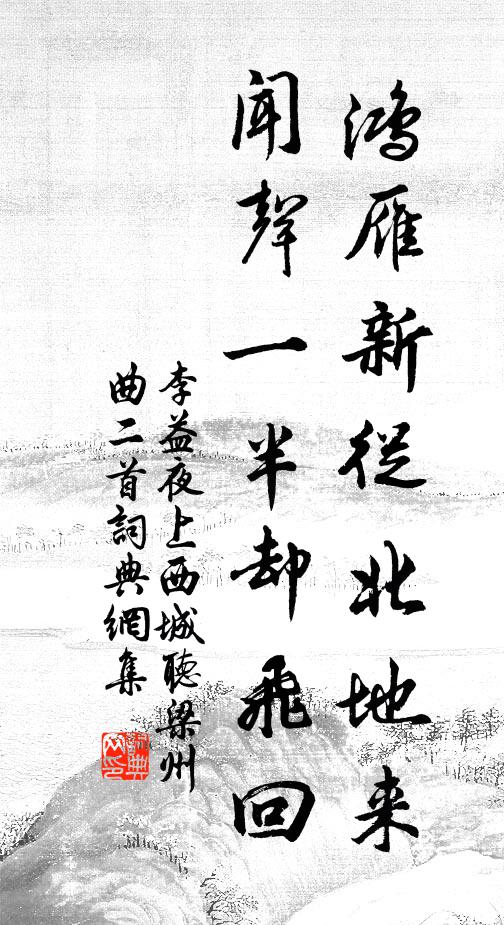 鴻雁新從北地来
聞聲一半却飛回
李益夜上西城聽梁州
曲二首詞典網集